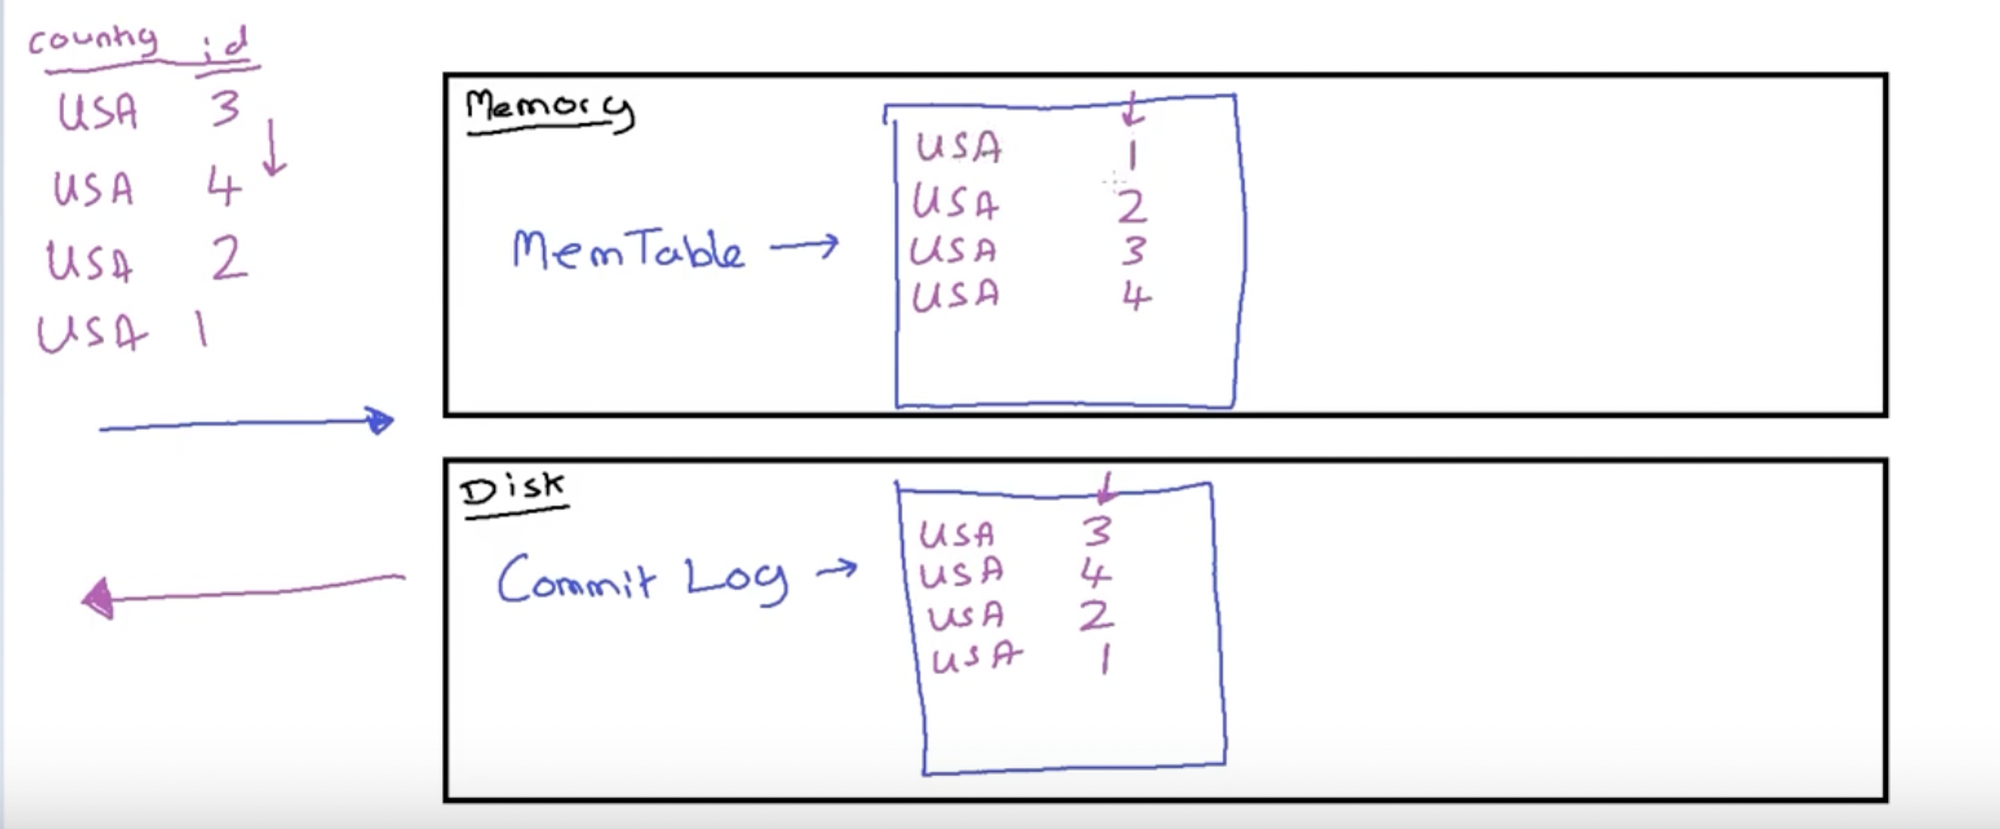 country id
USA 3
USA 4
USA 2
USA 1
Memory
MemTable →
USA 1
USA 2
USA 3
USA 4
Disk
Commit Log →
USA 3
USA 4
USA 2
USA 1